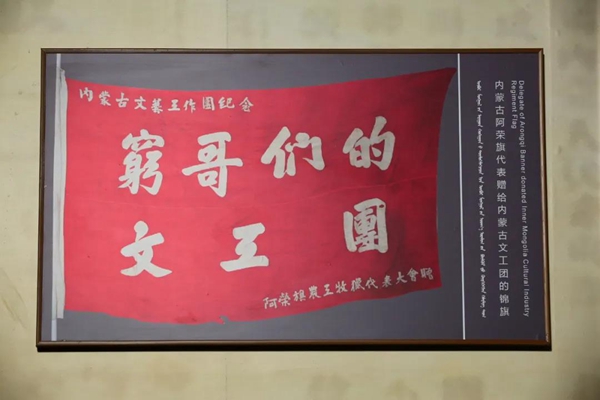 内蒙古文藝工作團纪念
窮哥们的
文工團
阿榮旗農工牧獵代表大會贈
Delegate of Arongqi Banner donated Inner Mongolia Cultural Industry
Regiment Flag
内蒙古阿荣旗代表赠给内蒙古文工团的锦旗